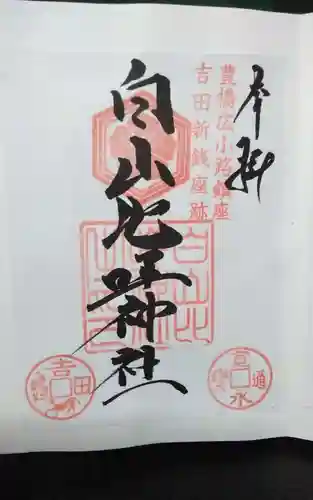 奉拝
豊橋広小路鎮座
吉田新銭座跡
白山比咩神社
白山比
吉田
寛永通